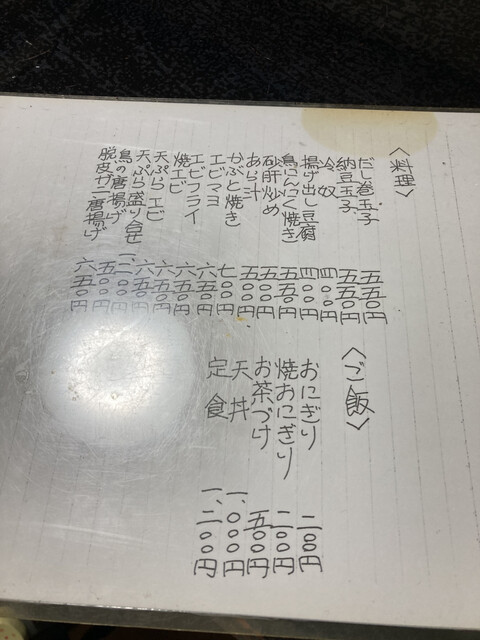 〈料理〉
だし巻玉子 五五〇円
納豆玉子 五五〇円
冷奴 四〇〇円
揚げ出し豆腐 四〇〇円
鳥にんにく焼き 五五〇円
砂肝炒め 五〇〇円
あら汁 五〇〇円
かぶと焼き 七〇〇円
エビマヨ 六五〇円
エビフライ 六五〇円
焼エビ 六五〇円
天ぷらエビ 六五〇円
天ぷら盛り合せ 一、二〇〇円
鳥の唐揚げ 五〇〇円
脱皮ガニ唐揚げ 六五〇円
〈ご飯〉
おにぎり 二〇〇円
焼おにぎり 二〇〇円
お茶づけ 五〇〇円
天丼 一、〇〇〇円
定食 一、二〇〇円